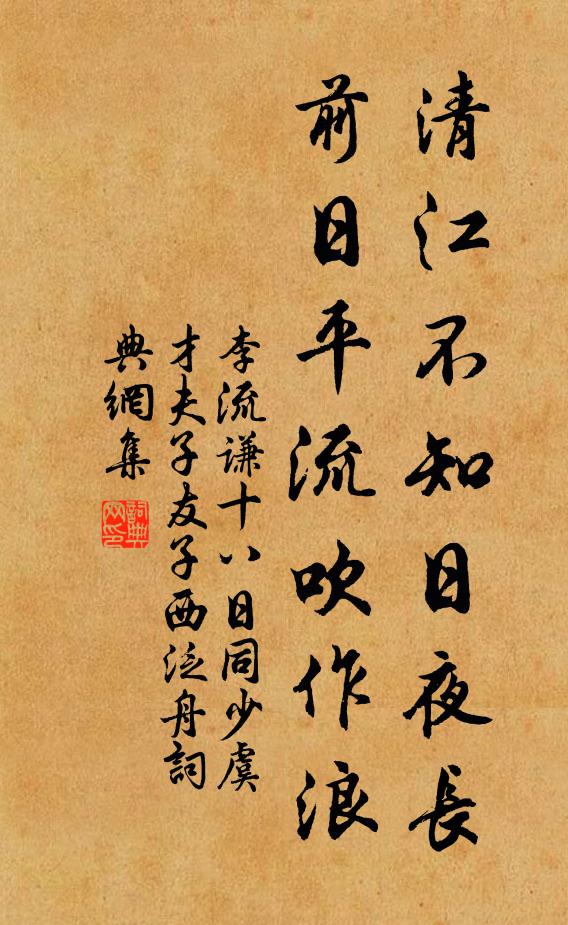 清江不知日夜長
前日平流吹作浪
李流謙十八日同少虞
才夫子友子西泛舟詞
典網集
詞典
网印